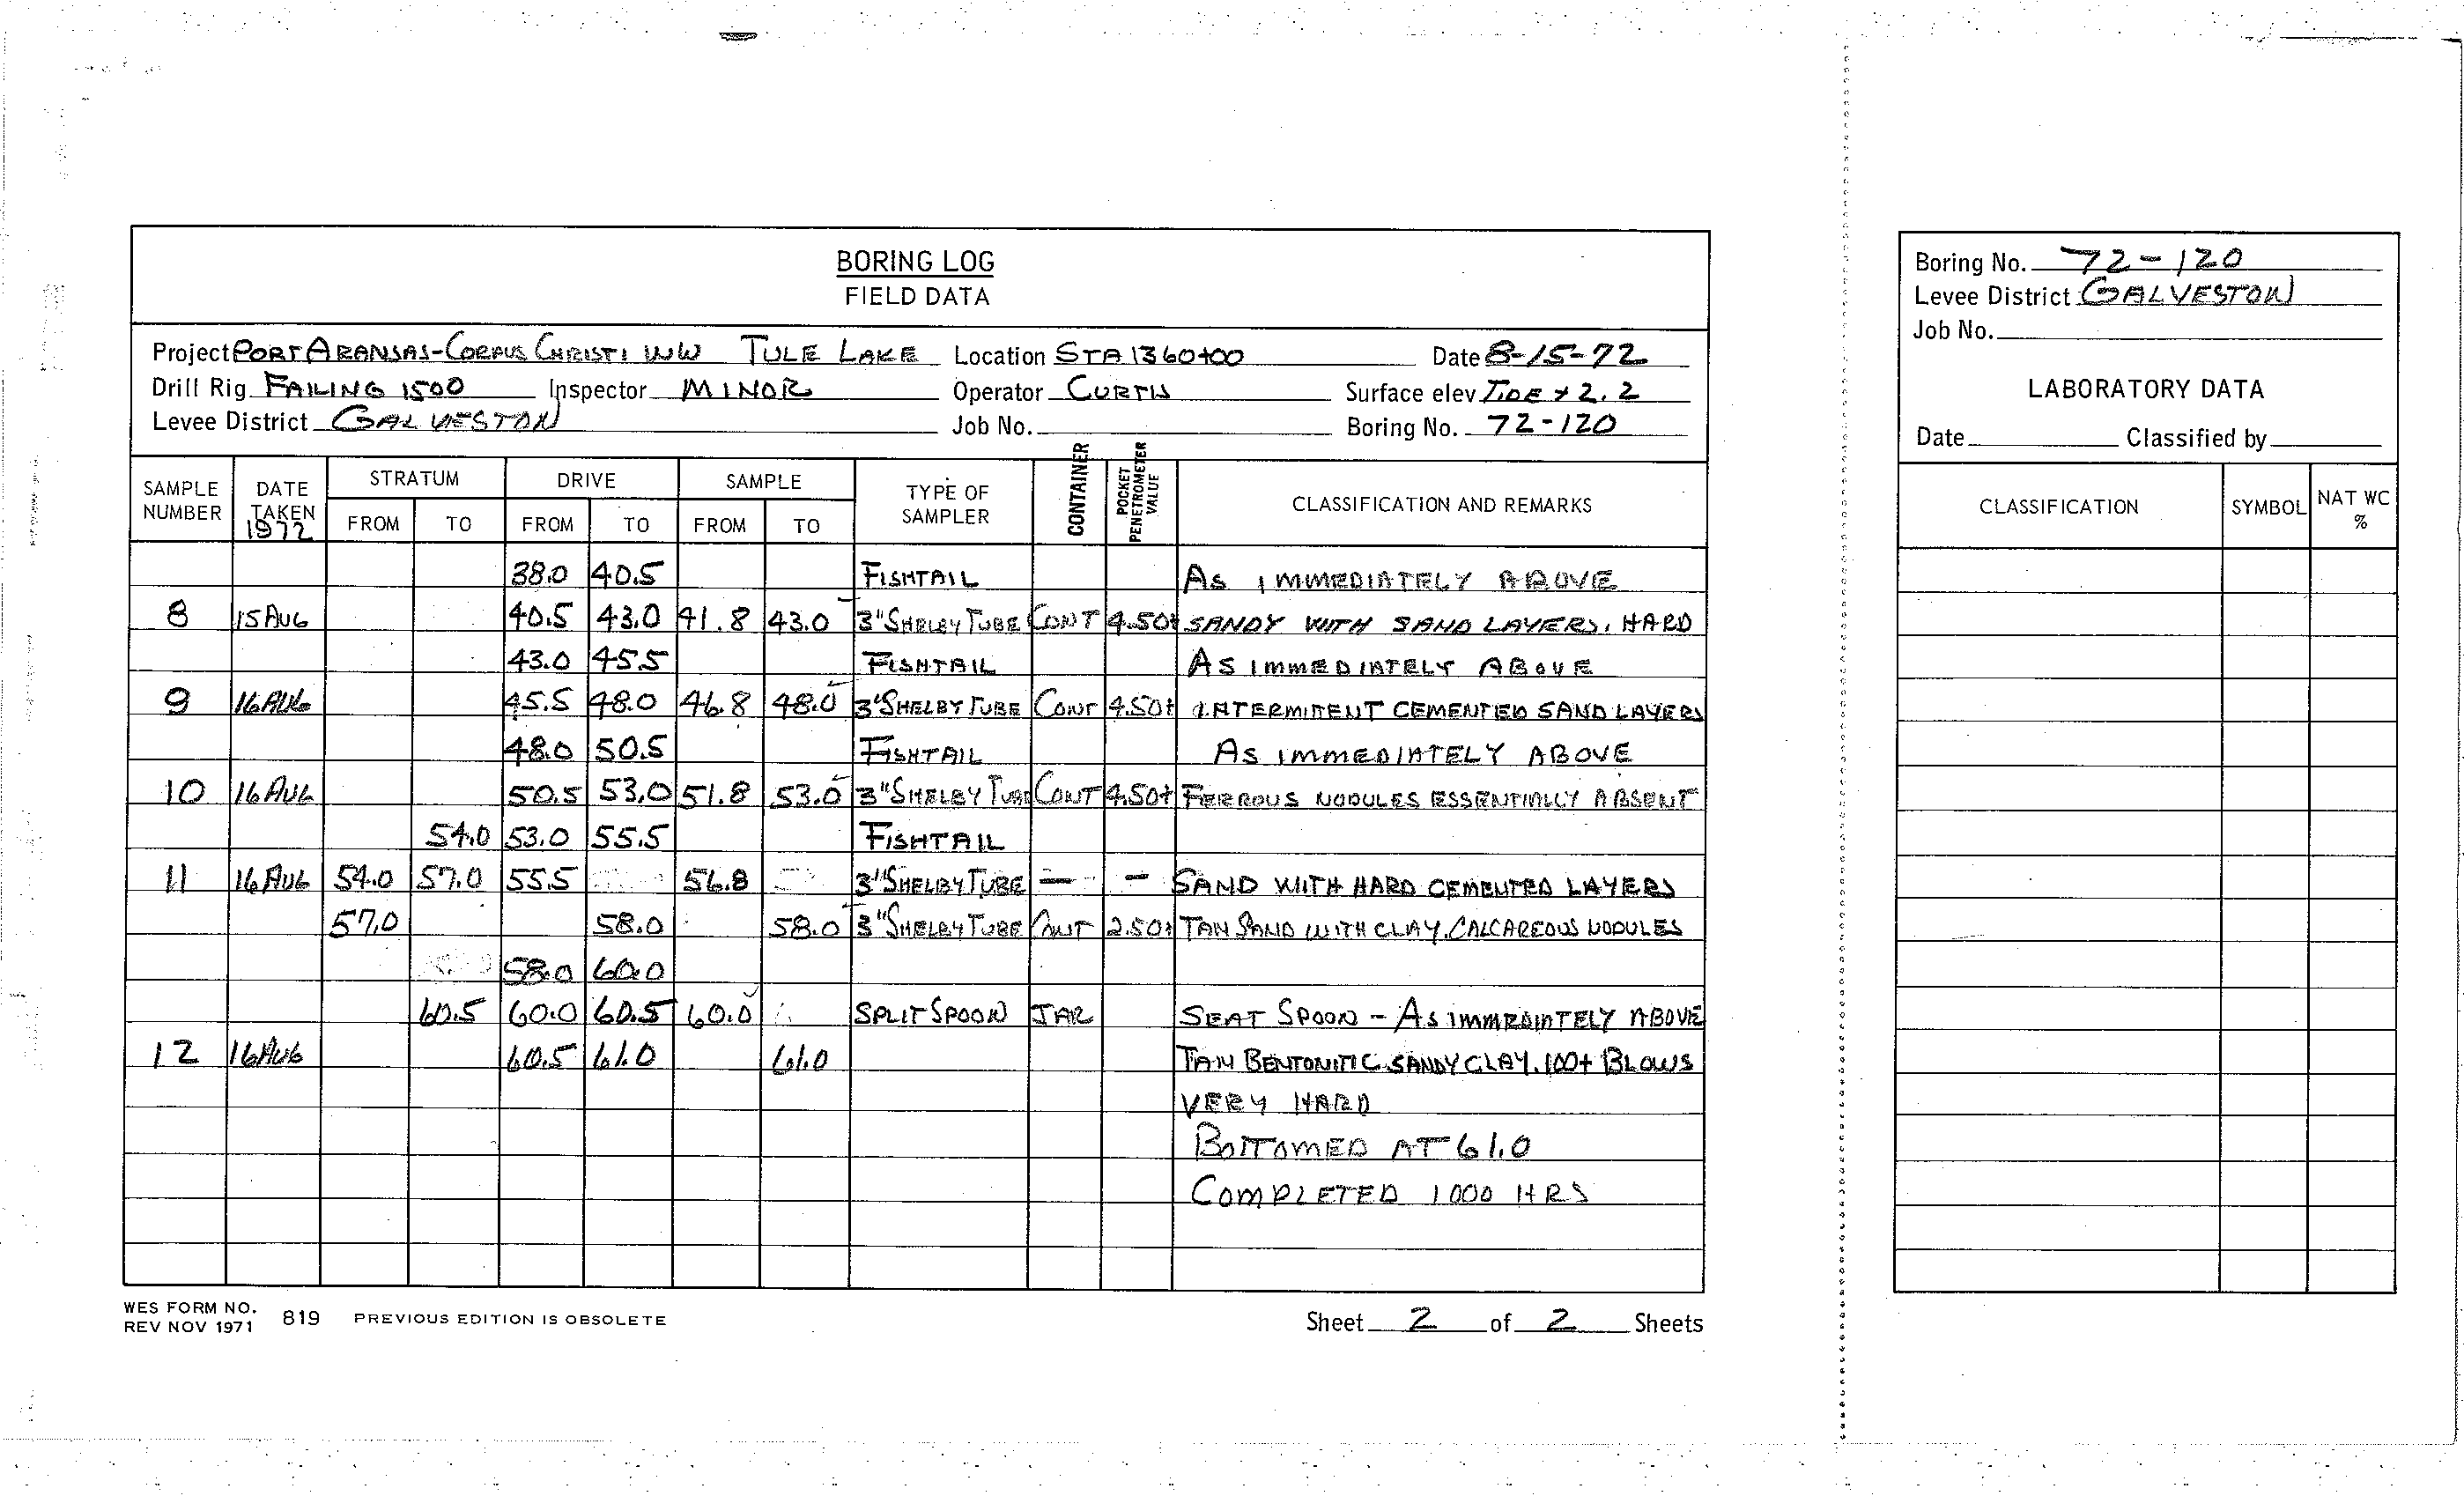 BORING LOG
FIELD DATA
Project PORT ARANSAS-CORPUS CHRISTI WW TULE LAKE Location STA 1360+00 Date 8-15-72
Drill Rig FAILING 1500 Inspector MINOR Operator CURTIS Surface elev TIDE + 2.2
Levee District GALVESTON Job No. Boring No. 72-120
SAMPLE NUMBER DATE TAKEN 1972 STRATUM DRIVE SAMPLE TYPE OF SAMPLER CONTAINER POCKET PENETROMETER VALUE CLASSIFICATION AND REMARKS
FROM TO FROM TO FROM TO
38.0 40.5 FISHTAIL AS IMMEDIATELY ABOVE
8 15 AUG 40.5 43.0 41.8 43.0 3" SHELBY TUBE CONT 4.50+ SANDY WITH SAND LAYERS, HARD
43.0 45.5 FISHTAIL AS IMMEDIATELY ABOVE
9 16 AUG 45.5 48.0 46.8 48.0 3" SHELBY TUBE CONT 4.50+ INTERMITENT CEMENTED SAND LAYERS
48.0 50.5 FISHTAIL AS IMMEDIATELY ABOVE
10 16 AUG 50.5 53.0 51.8 53.0 3" SHELBY TUBE CONT 4.50+ FERROUS NODULES ESSENTIALLY ABSENT
54.0 53.0 55.5 FISHTAIL
11 16 AUG 54.0 57.0 55.5 56.8 3" SHELBY TUBE — – SAND WITH HARD CEMENTED LAYERS
57.0 58.0 58.0 3" SHELBY TUBE CONT 2.50+ TAN SAND WITH CLAY, CALCAREOUS NODULES
58.0 60.0
60.5 60.0 60.5 60.0 SPLIT SPOON JAR SEAT SPOON - AS IMMEDIATELY ABOVE
12 16 AUG 60.5 61.0 61.0 TAN BENTONITIC SANDY CLAY. 100+ BLOWS
VERY HARD
BOTTOMED AT 61.0
COMPLETED 1000 HRS
WES FORM NO. 819 PREVIOUS EDITION IS OBSOLETE
REV NOV 1971
Sheet 2 of 2 Sheets
Boring No. 72-120
Levee District GALVESTON
Job No.
LABORATORY DATA
Date Classified by
CLASSIFICATION SYMBOL NAT WC %